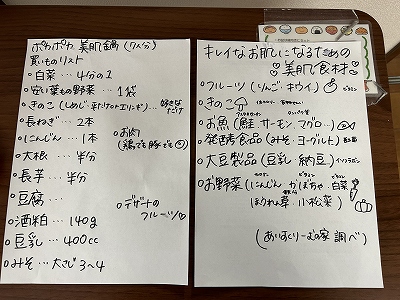 ポカポカ 美肌鍋(1人分)
買いものリスト
○白菜…4分の1
○安い葉もの野菜…1袋
○きのこ(しめじ・平たけorエリンギ)…好きなだけ
○長ねぎ…2本
○にんじん…1本
お肉
(鶏でも豚でも)
○大根…半分
○長芋…半分
○豆腐…
○デザートの
フルーツ♡
○酒粕…140g
○豆乳…400cc
○みそ…大さじ3〜4
キレイなお肌になるための
♡美肌食材♡
○フルーツ(りんご・キウイ)
○きのこ
○お魚(鮭 サーモン、マグロ…)
○発酵食品(みそ・ヨーグルト)
○大豆製品(豆乳 納豆)イソフラボン
○お野菜(にんじん かぼちゃ 白菜
ほうれん草 小松菜)
(あいすくりーむの家 調べ)